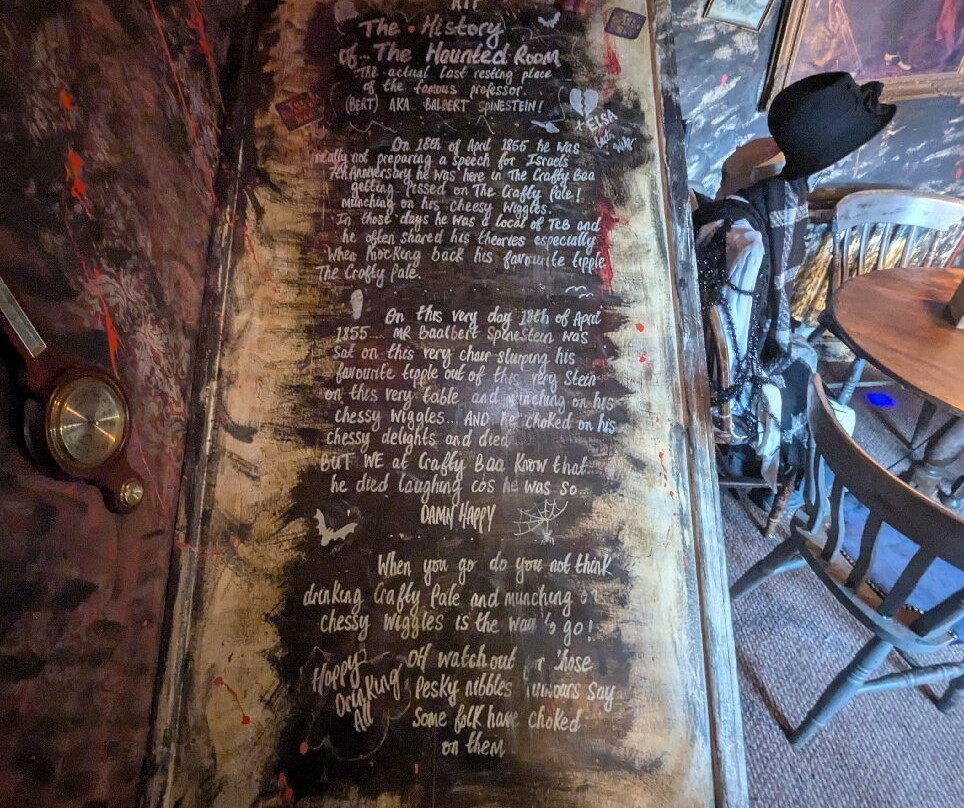 RIP
The History
of... The Haunted Room
The actual last resting place
of the famous professor.
(BERT) AKA BALBERT SPINESTEIN!
ELSA
On 18th of April 1855 he was
really not preparing a speech for Israels
7th Anniversary he was here in The Crafty Baa
getting pissed on The Crafty Pale!
munching on his cheesy wiggles.
In those days he was a local of TCB and
he often shared his theories especially
when knocking back his favourite tipple
The Crafty Pale.
On this very day 18th of April
1855... MR Baalbert SpineStein was
sat on this very chair slurping his
favourite tipple out of this very Stein
on this very table and munching on his
chessy wiggles... AND he choked on his
chessy delights and died
BUT WE at Crafty Baa know that
he died laughing cos he was so
DAMN HAPPY
When you go do you not think
drinking Crafty Pale and munching on
chessy wiggles is the way to go!
Happy
Drinking
All
OH watch out for those
Pesky nibbles rumours say
some folk have choked
on them